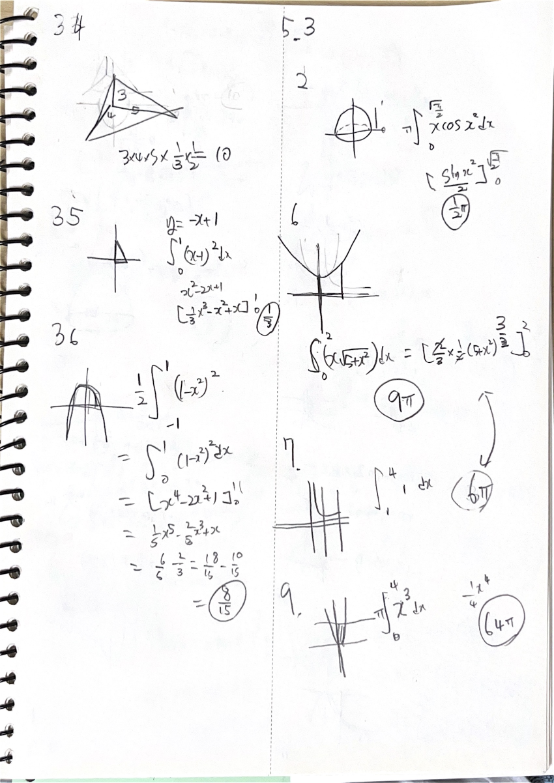 34
3
4 5
3×4×5×1/3×1/2 10
35
y= -x+1
∫₀¹(x-1)²dx
x²-2x+1
[1/3x³-x²+x]₀¹ 1/3
36
1/2∫₋₁¹(1-x²)²
= ∫₀¹(1-x²)²dx
= [x⁴-2x²+1]₀¹
= 1/5x⁵-2/3x³+x
= 6/5-2/3=18/15-10/15
= 8/15
5_3
2
π∫₀ x cos x² dx
[sin x²/2]₀
1/2π
6
∫₀²(x√5+x²)dx = [2/3×1/2(5+x²)^3/2]₀²
9π
7.
∫₁⁴ 1 dx 6π
9.
π∫₀⁴x³dx 1/4x⁴
64π